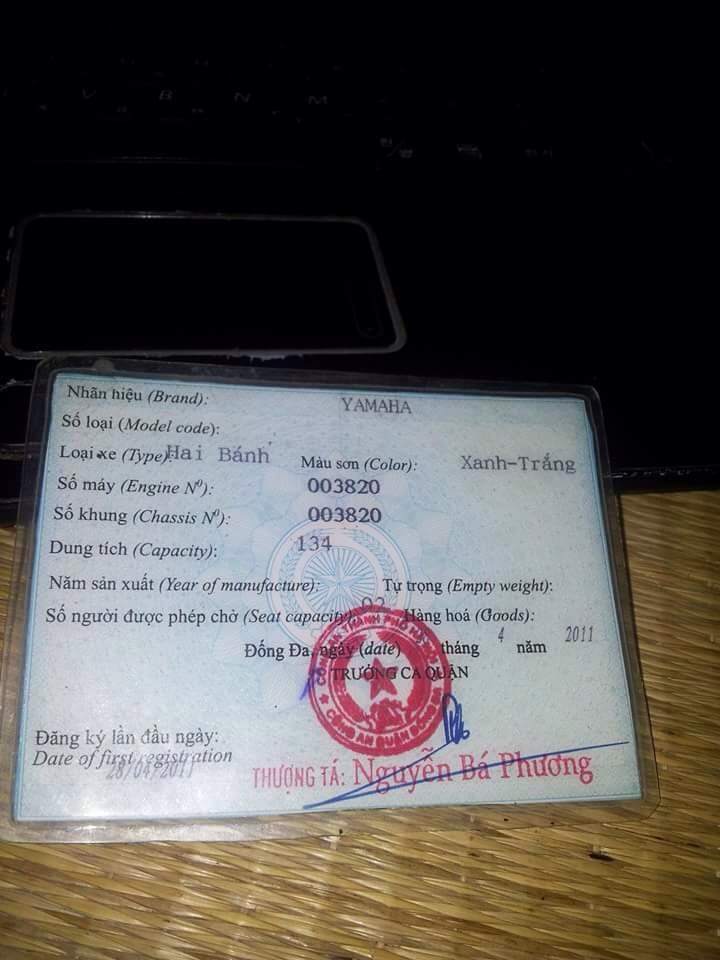 V B N M
Nhãn hiệu (Brand): YAMAHA
Số loại (Model code):
Loại xe (Type): Hai Bánh Màu sơn (Color): Xanh-Trắng
Số máy (Engine Nº): 003820
Số khung (Chassis Nº): 003820
Dung tích (Capacity): 134
Năm sản xuất (Year of manufacture): Tự trọng (Empty weight):
Số người được phép chở (Seat capacity): 02 Hàng hoá (Goods):
Đống Đa, ngày (date) tháng 4 năm 2011
TRƯỞNG CA QUẬN
CÔNG AN QUẬN ĐỐNG
Đăng ký lần đầu ngày:
Date of first registration
28/04/2011
THƯỢNG TÁ: Nguyễn Bá Phương